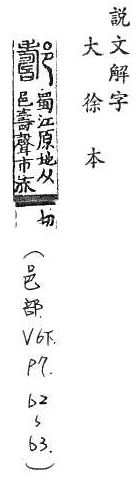 説文解字
大徐本
𨞪 蜀江原地从
邑壽聲市朱
切
(邑部. V6下. P7. b2~b3.)